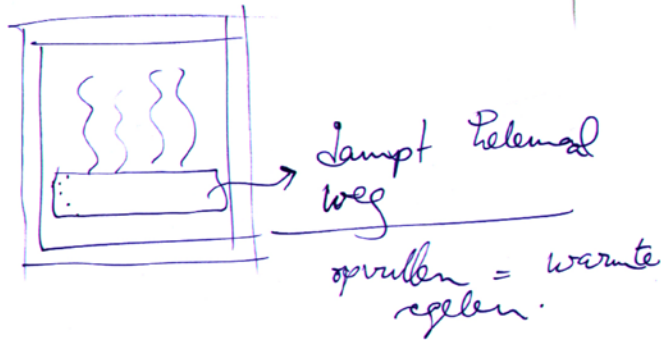 dampt helemaal
weg
opvullen = warmte
regelen.